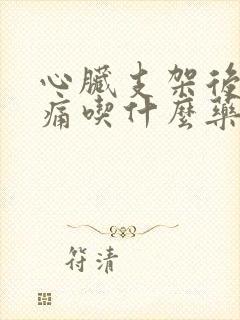 心臟支架後
痛喫什麼藥
符清